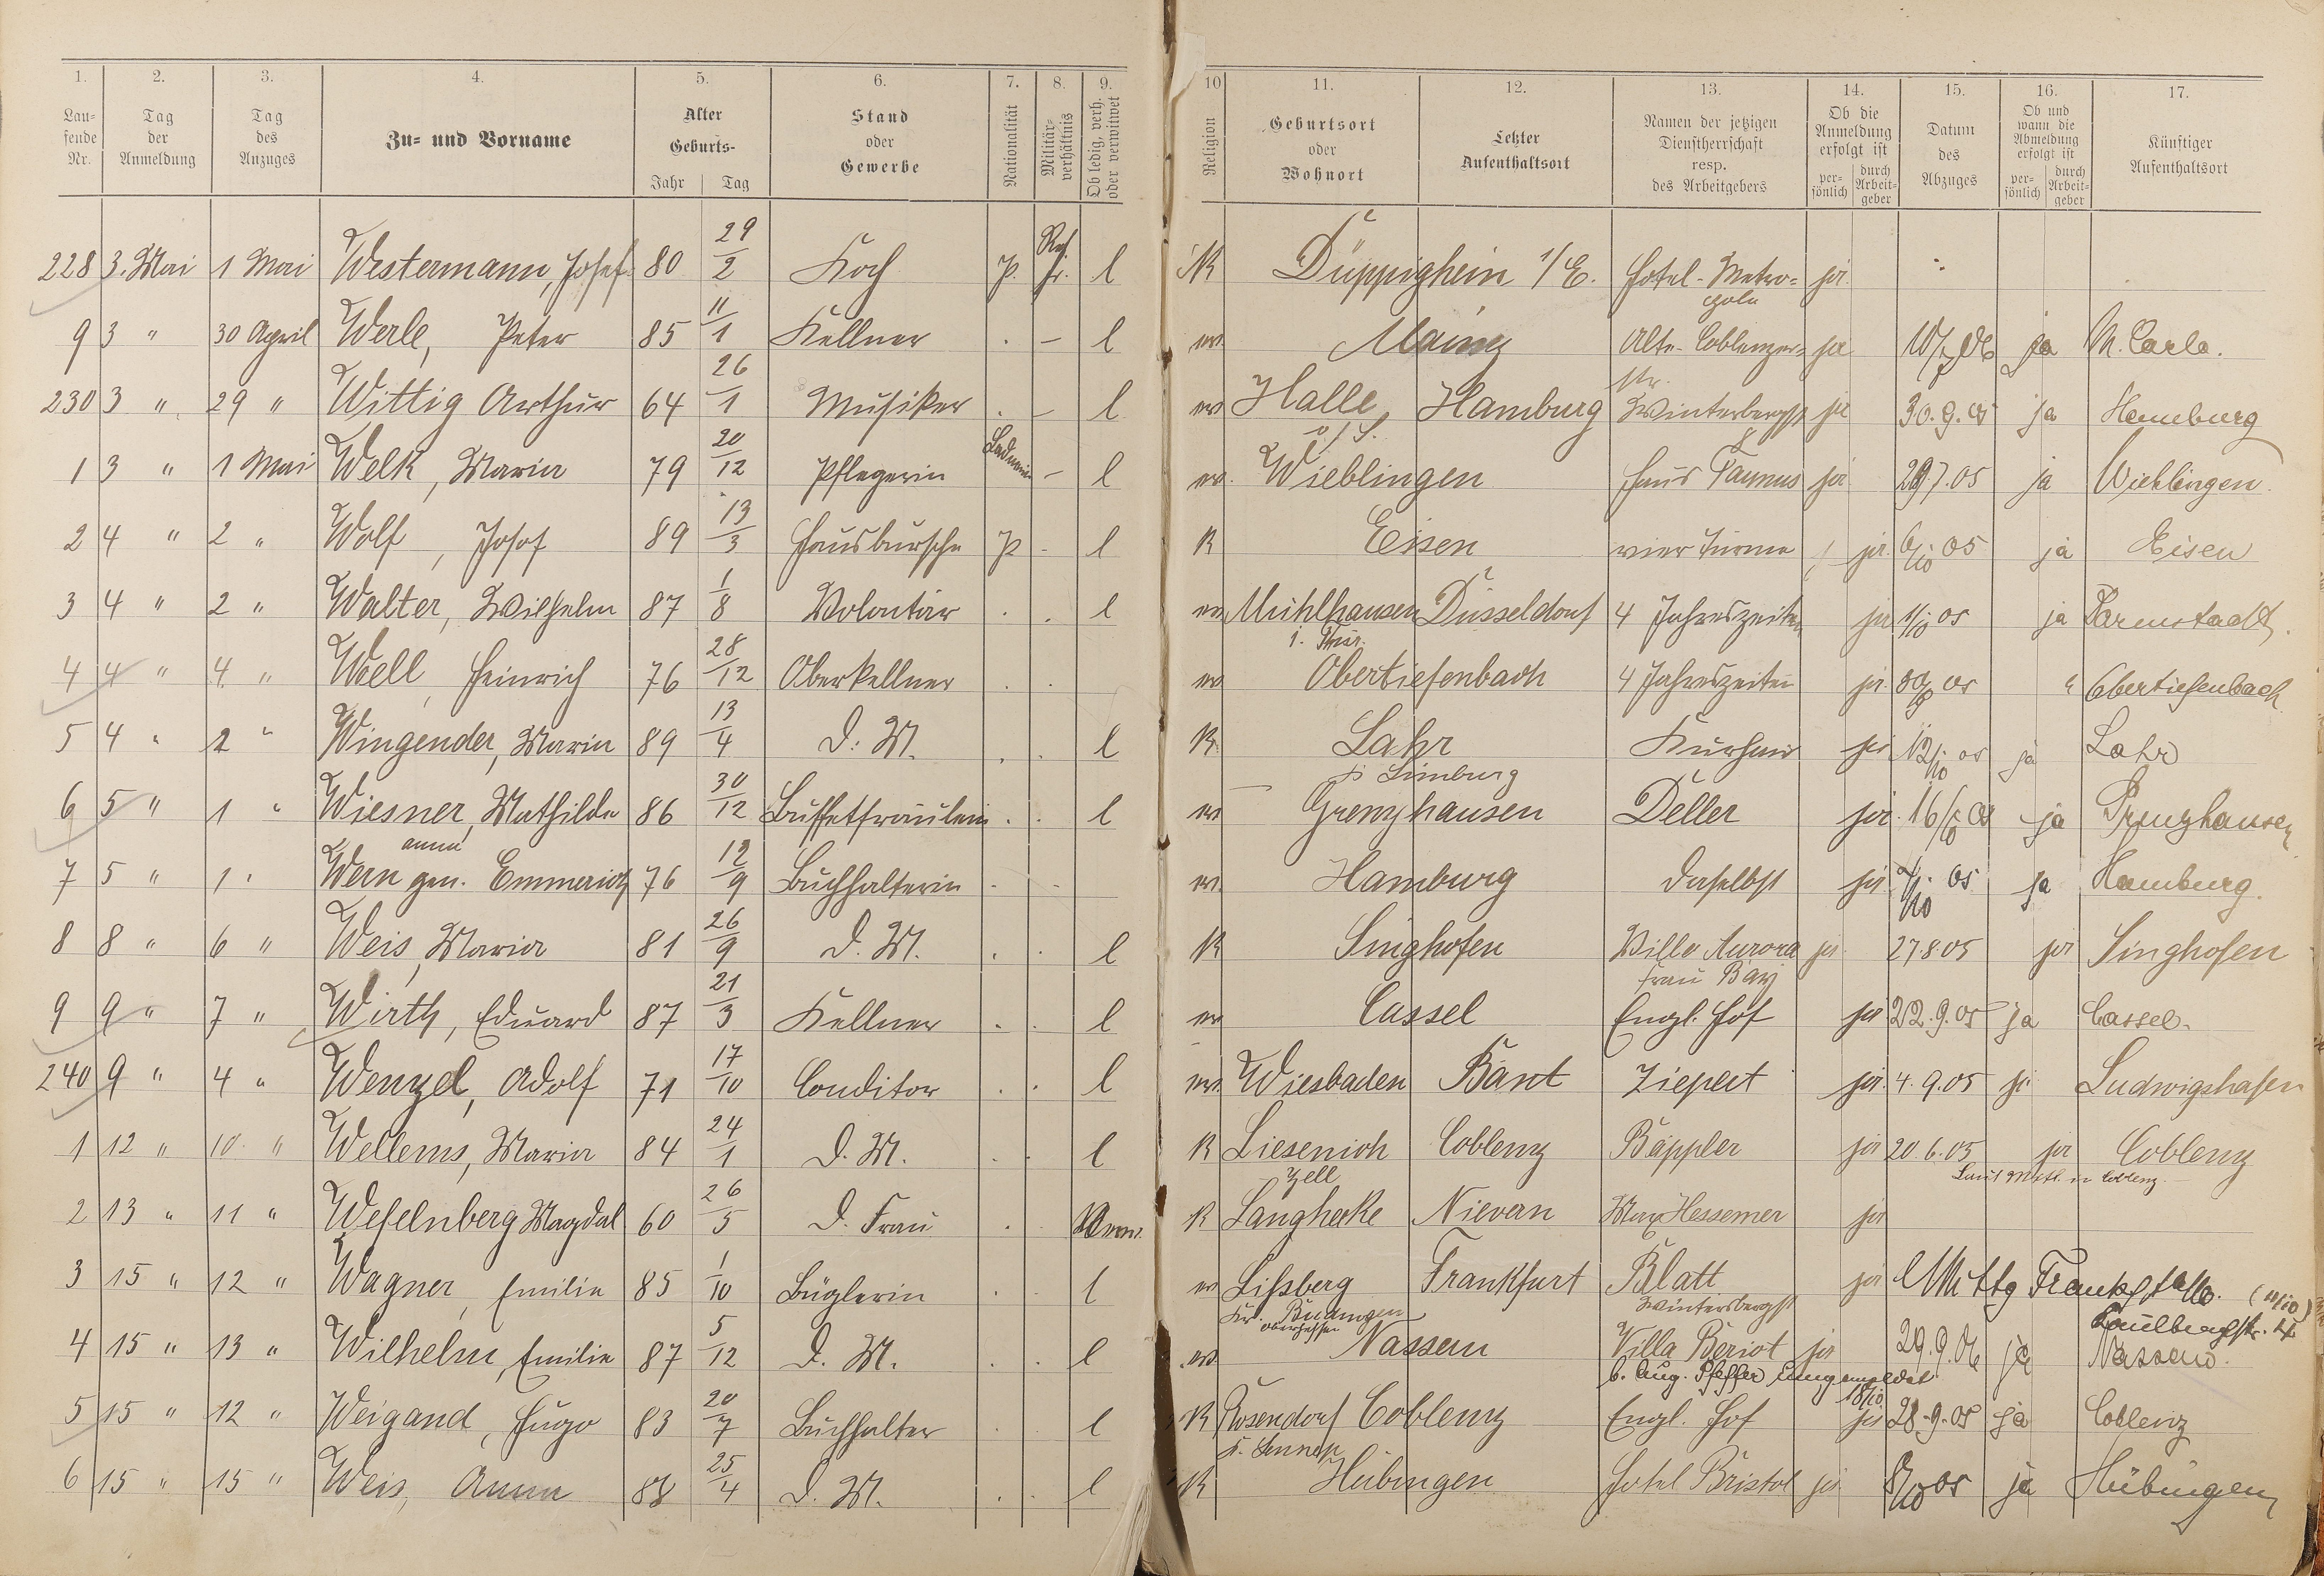 1. 2. 3. 4. 5. 6. 7. 8. 9. 10 11. 12. 13. 14. 15. 16. 17.
Lau- fende Nr. Tag der Anmeldung Tag des Anzuges Zu- und Vorname Alter Geburts- Jahr Tag Stand oder Gewerbe Nationalität Militär- verhältnis Ob ledig, verh. oder verwitwet Religion Geburtsort oder Wohnort Letzter Aufenthaltsort Namen der jetzigen Dienstherrschaft resp. des Arbeitgebers Ob die Anmeldung erfolgt ist per- sönlich durch Arbeit- geber Datum des Abzuges Ob und wann die Abmeldung erfolgt ist per- sönlich durch Arbeit- geber Künftiger Aufenthaltsort
228 3. Mai 1 Mai Westermann, Josef 80 29/2 Koch P. l K Düppigheim i/E. Hotel-Metro= pole ja
9 3 " 30 April Werle, Peter 85 11/1 Kellner . – l ev. Mainz Alte-Coblenzer= str. ja ja
230 3 " 29 " Wittig Arthur 64 26/1 Musiker . – l ev Halle a/S. Hamburg Winterbergst ja 30.9.05 ja Hamburg
1 3 " 1 Mai Welk, Maria 79 20/12 Pflegerin – l ev. Wieblingen Haus Taunus ja 29.7.05 ja Wieblingen.
2 4 " 2 " Wolf, Josef 89 13/3 Hausbursche P - l K Eisen vier Türme ja 6/10 05 ja Eisen
3 4 " 2 " Walter, Wilhelm 87 1/8 Volontär . . l ev Mühlhausen i. Thür. Düsseldorf 4 Jahreszeiten ja 1/10 05 ja Darmstadt.
4 4 " 4 " Woell, Heinrich 76 28/12 Oberkellner . . ev Obertiefenbach 4 Jahreszeiten ja " Obertiefenbach
5 4 " 2 " Wingender, Maria 89 13/4 D. M. . . l K. Lahr b Limburg Kurhaus ja 12/10 05 ja Lahr
6 5 " 1 " Wiesner, Mathilde 86 30/12 Buffetfräulein . . l ev Grenzhausen Deller ja 16/10 05 ja Grenzhausen
7 5 " 1 " Wern gen. Emmerich, Anna 76 12/9 Buchhalterin . . ev. Hamburg daselbst ja 05 ja Hamburg.
8 8 " 6 " Weis, Maria 81 26/9 D. M. . . l K Singhofen Villa Aurora Frau Bay ja 27.8.05 ja Singhofen
9 9 " 7 " Wirth, Eduard 87 21/3 Kellner . . l ev Cassel Engl. Hof ja 22.9.05 ja Cassel.
240 9 " 4 " Wenzel, Adolf 71 17/10 Conditor . . l ev. Wiesbaden Bant Ziepert ja 4.9.05 ja Ludwigshafen
1 12 " 10 " Wellems, Maria 84 24/1 D. M. . . l K Liesenich Zell Coblenz Bäppler ja 20.6.05 ja Coblenz
2 13 " 11 " Weselnberg Magdal 60 26/5 D. Frau . . K Langhecke Nievern Max Hessemer ja
3 15 " 12 " Wagner, Emilie 85 1/10 Büglerin . . l ev Lißberg Kr. Büdingen Oberhessen Frankfurt Blatt Wintersbergst ja (11/10)
4 15 " 13 " Wilhelm, Emilie 87 5/12 D. M. . . l ev Nassau Villa Beriot ja b. Aug. Pfeffer umgemeldet 18/10. 29.9.06 ja Nassau.
5 15 " 12 " Weigand, Hugo 83 20/7 Buchhalter . . l K Rosendorf Coblenz Engl. Hof ja 28.9.05 ja Coblenz
6 15 " 15 " Weis, Anna 88 25/4 D. M. . . l K Hübingen Hotel Bristol ja 8/10 05 ja Hübingen